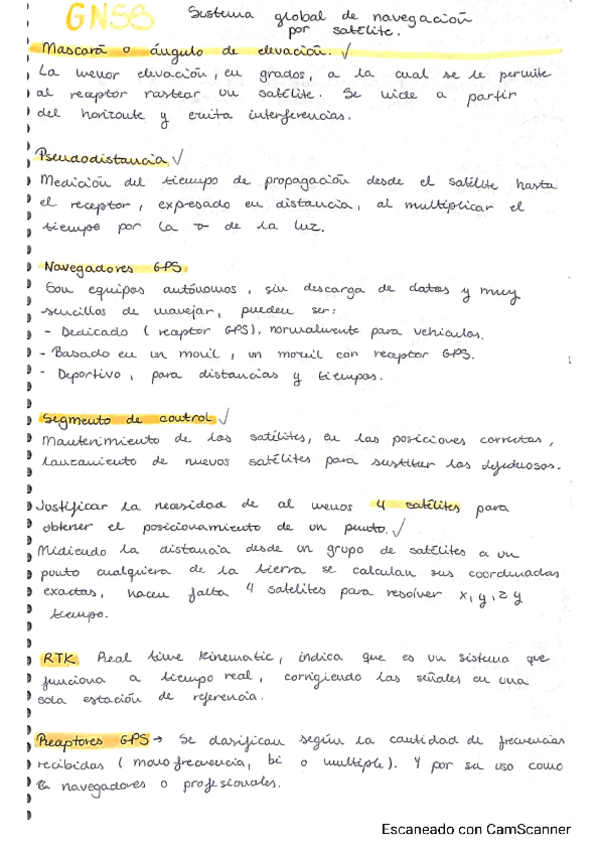 GNSS Sistema global de navegación
por satélite.
Mascara o ángulo de elevación. ✓
La menor elevación, en grados, a la cual se le permite
al receptor rastear un satélite. Se mide a partir
del horizonte y evita interferencias.
Pseudodistancia ✓
Medición del tiempo de propagación desde el satélite hasta
el receptor, expresado en distancia, al multiplicar el
tiempo por la v de la luz.
Navegadores GPS
Son equipos autónomos, sin descarga de datos y muy
sencillos de manejar, pueden ser:
- Dedicado (receptor GPS), normalmente para vehículos.
- Basado en un movil, un movil con receptor GPS.
- Deportivo, para distancias y tiempos.
Segmento de control ✓
Mantenimiento de los satélites, en las posiciones correctas,
lanzamiento de nuevos satélites para sustituir los defectuosos.
Justificar la necesidad de al menos 4 satélites para
obtener el posicionamiento de un punto. ✓
Midiendo la distancia desde un grupo de satélites a un
punto cualquiera de la tierra se calculan sus coordenadas
exactas, hacen falta 4 satelites para resolver x, y, z y
tiempo.
RTK Real time kinematic, indica que es un sistema que
funciona a tiempo real, corrigiendo las señales en una
sola estación de referencia.
Receptores GPS → Se clasifican según la cantidad de frecuencias
recibidas (monofrecuencia, bi o multiple). Y por su uso como
navegadores o profesionales.
Escaneado con CamScanner